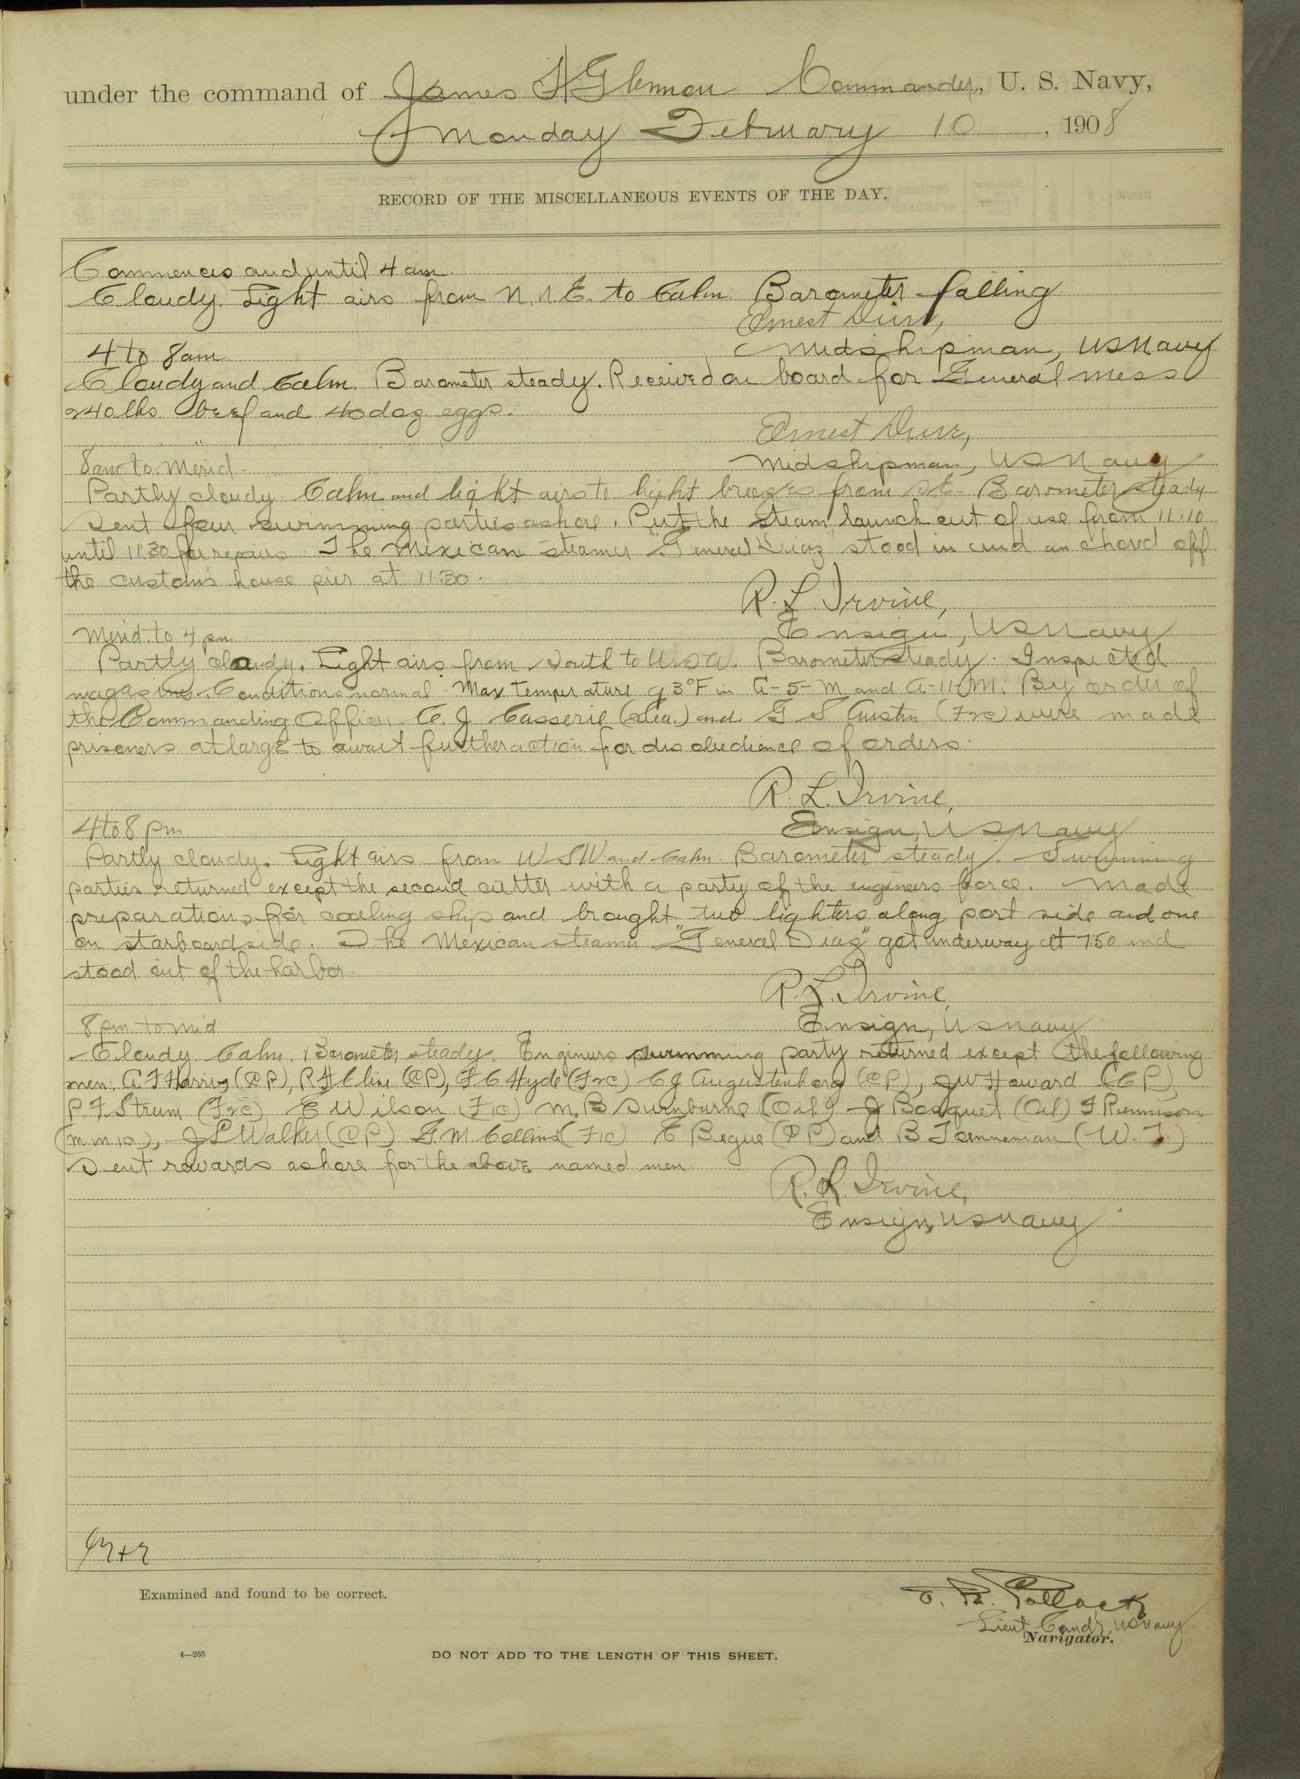 under the command of James H Glennon Commander, U. S. Navy,
Monday February 10, 1908
RECORD OF THE MISCELLANEOUS EVENTS OF THE DAY.
Commences and until 4 am.
Cloudy. Light airs from N.N.E. to Calm Barometer falling
Ernest Durr,
4 to 8 am Midshipman, US Navy
Cloudy and Calm. Barometer steady. Received on board for General mess
240 lbs beef and 40 doz eggs.
Ernest Durr,
8 am to Merid. Midshipman, US Navy
Partly cloudy. Calm and light airs to light breezes from SE. Barometer steady
Sent four swimming parties ashore. Put the steam launch out of use from 11.10
until 11.30 for repairs. The Mexican steamer "General Diaz" stood in and anchored off
the customs house pier at 11:30.
R. L. Irvine,
Merid. to 4 pm Ensign, US Navy
Partly cloudy. Light airs from South to WSW. Barometer steady. Inspected
magazines Conditions normal. Max temperature 93°F in A-5-M and A-11-M. By order of
the Commanding Officer C. J. Casserie (Sea.) and G S Austin (F2c) were made
prisoners at large to await further action for disobedience of orders.
R. L. Irvine,
4 to 8 pm Ensign, US Navy
Partly cloudy. Light airs from WSW and Calm Barometer steady. Swimming
parties returned except the second cutter with a party of the engineers force. Made
preparations for coaling ship and brought two lighters along port side and one
on starboard side. The Mexican steamer "General Diaz" got underway at 7.50 and
stood out of the harbor.
R. L. Irvine,
8 pm to mid Ensign, US Navy
Cloudy Calm. Barometer steady. Engineers swimming party returned except the following
men. A F Harris (CP), R H Cline (CP), F C Hyde (F2c) C J Augustenborg (CP), J W Howard (CP),
P. F Strum (F2c) E Wilson (F1c) M. B Swinburne (Oil) J Bosquet (Oil) F Runnison
(M M 1c), J L Walker (CP) G. M. Collins (F1c) E Begue (CP) and B Tanneman (W. T.)
Sent rewards ashore for the above named men.
R. L. Irvine,
Ensign, US Navy
Examined and found to be correct.
Pollock
Lieut. Comdr, US Navy
Navigator.
4—265
DO NOT ADD TO THE LENGTH OF THIS SHEET.